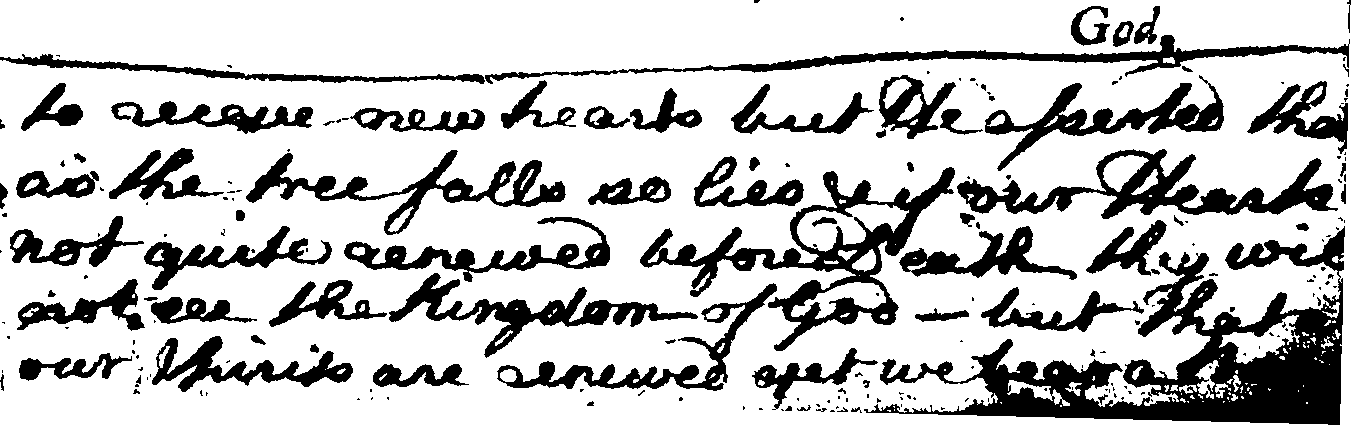 God,
to receive new hearts but He asserted tha
as the tree falls so lies & if our Hearts
not quite renewed before Death they wil
not see the Kingdom of God — but That
our Spirits are renewed yet we bear a